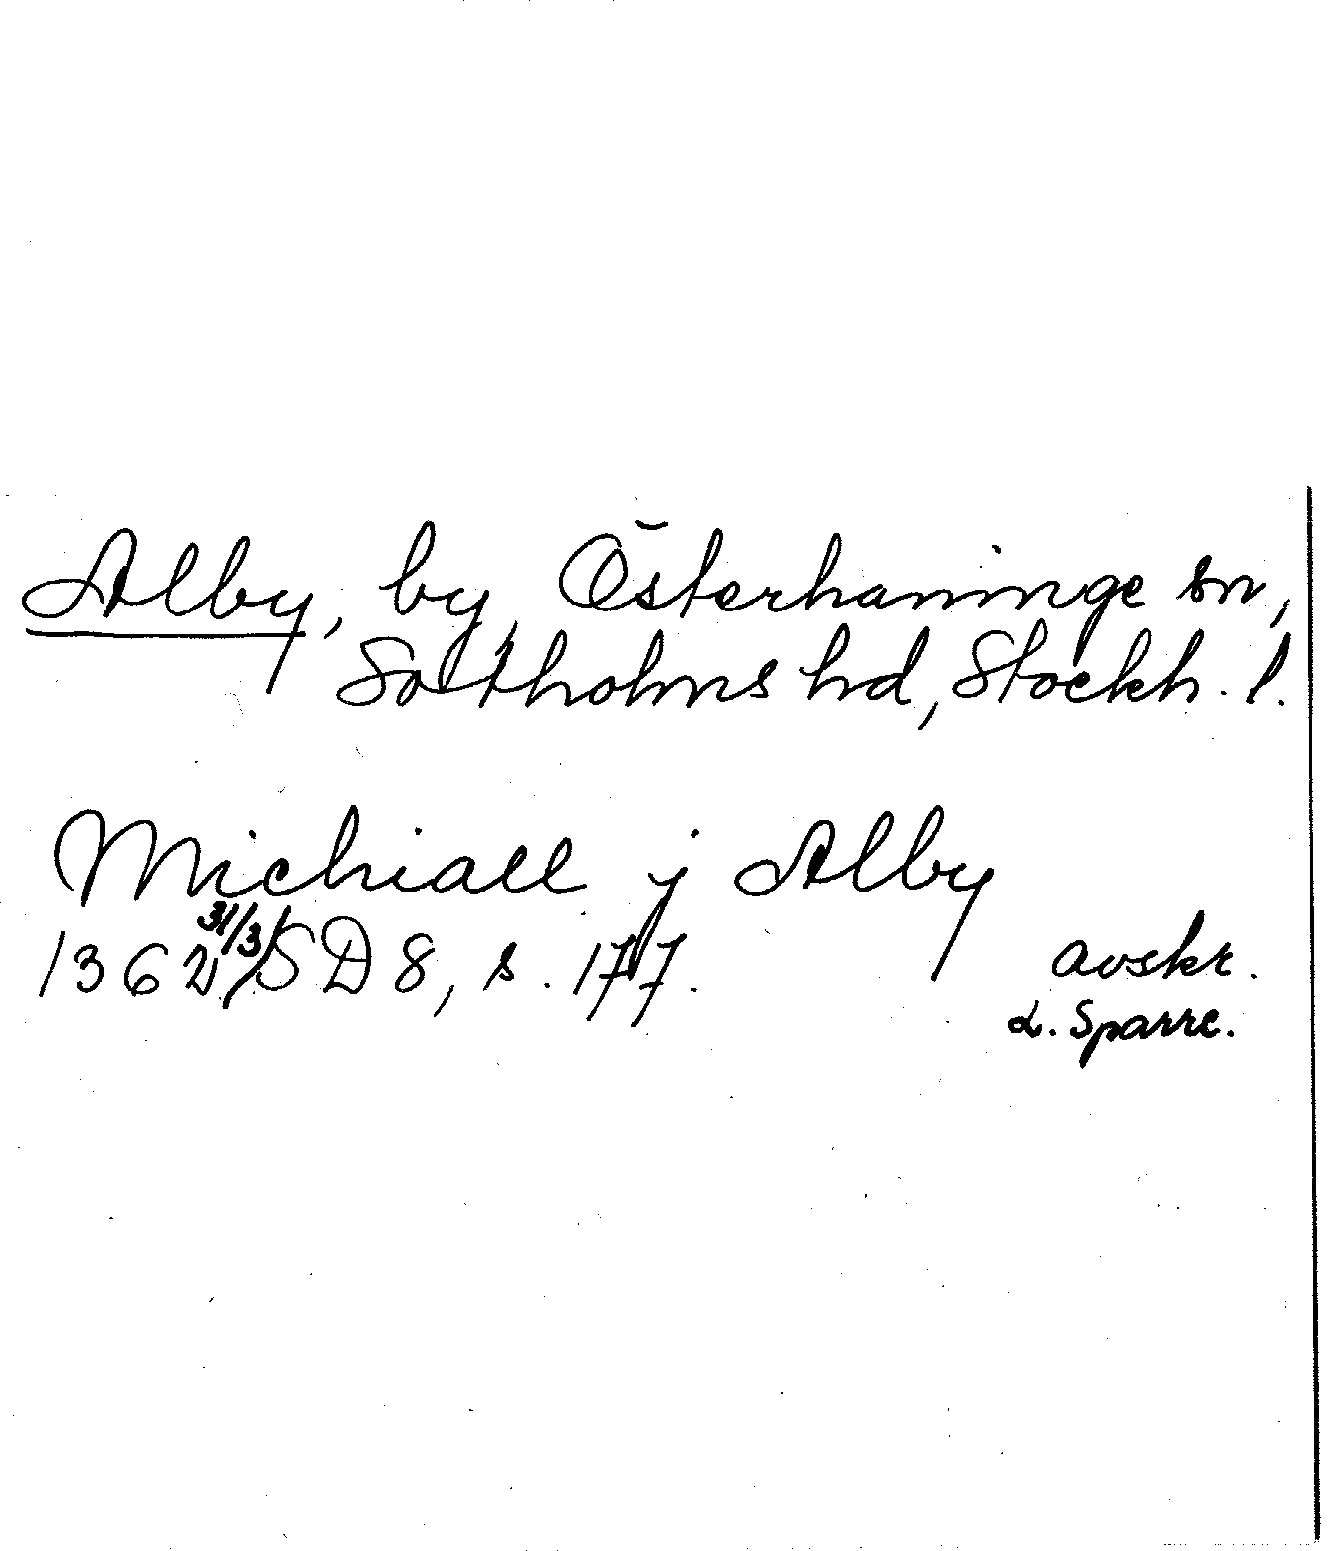 Alby, by, Österhaninge sn,
Sotholms hd, Stockh. l.
Michiall j Alby
1362 31/3 SD 8, s. 177.
avskr.
L. Sparre.